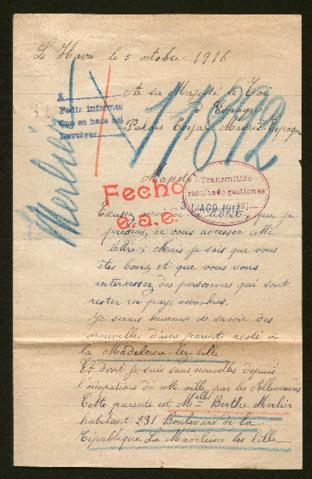 Le Havre le 5 octobre 1916
A sa Majesté le Roi
Espagne
Palais Royal Madrid Espagne
A
Pedir informes
Que se hace
Devolver
Merlier
17892
Majesté
Fecho
e.a.e.
Transmitido
resultado gestiones
31 AGO 1917
Excusez la liberté que je
prends de vous adresser
lettre; Mais je sais que vous
êtes bons, et que vous vous
interessez des personnes qui sont
rester en pays envahies.
Je serais heureux de savoir des
nouvelles d'une parent resté à
la Madeleine-lez-Lille
Et dont je suis sans nouvelles depuis
l'occupations de cette ville par les Allemands
Cette parente est Mlle Berthe Merlier
habitant 231 Boulevard de la
République La Madeleine lez Lille